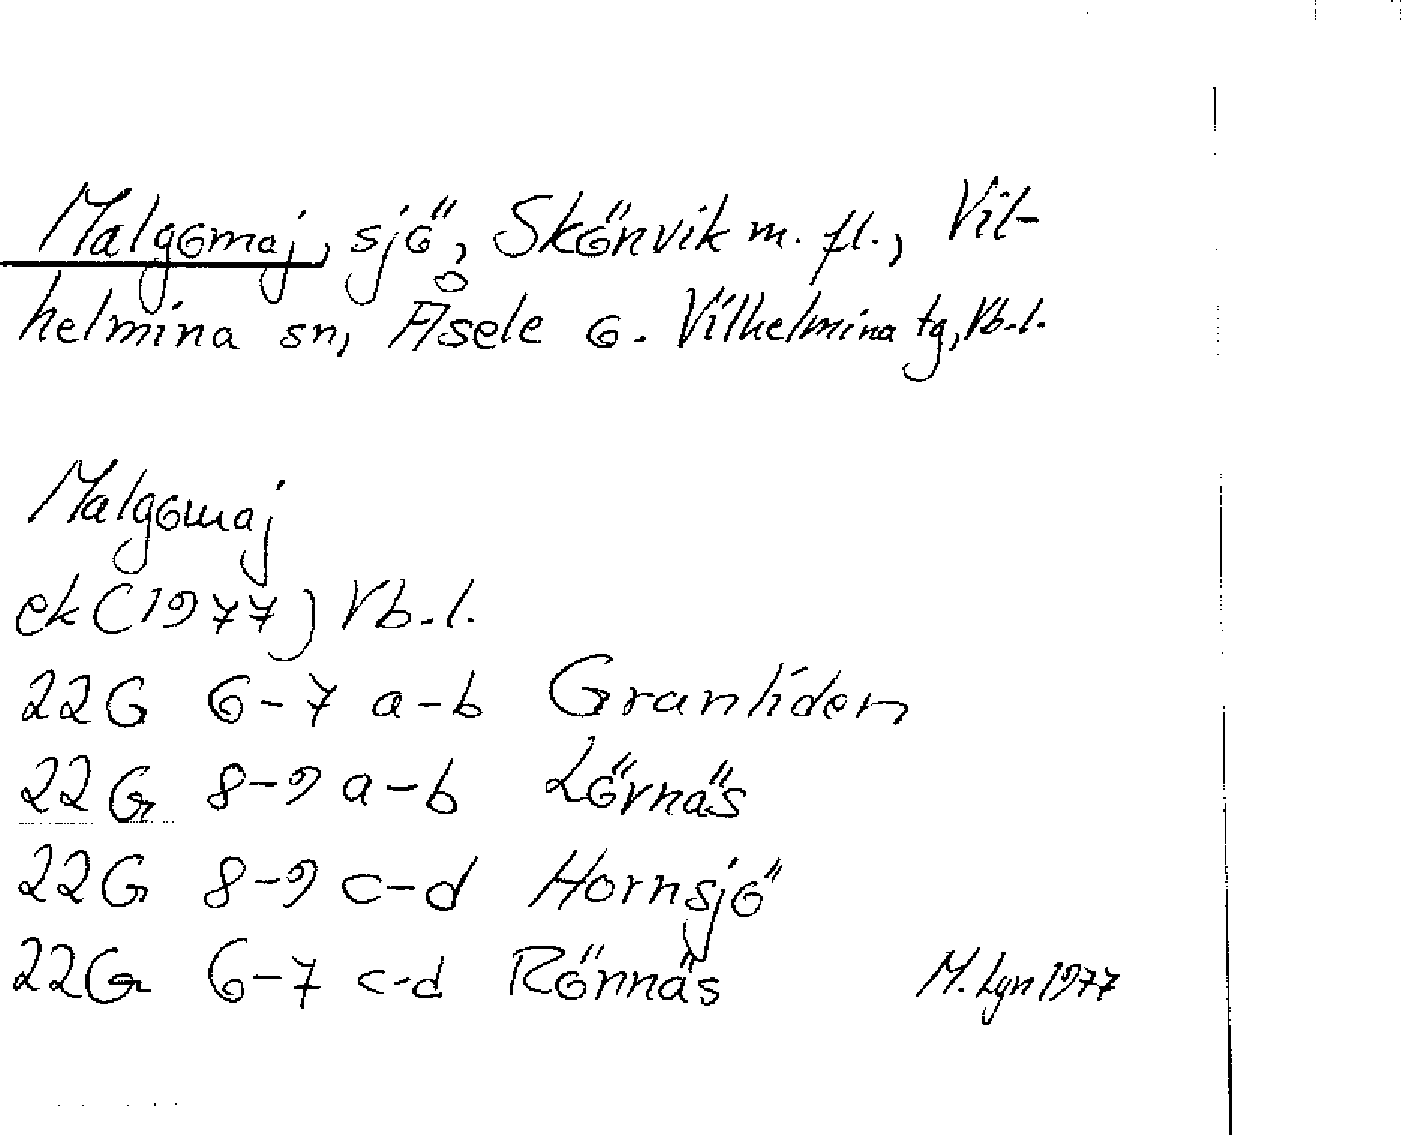 Malgomaj, sjö, Skönvik m. fl., Vil-
helmina sn, Åsele o. Vilhelmina tg, Vb. l.
Malgomaj
ek (1977) Vb. l.
22G 6-7 a-b Granliden
22G 8-9 a-b Lörnäs
22G 8-9 c-d Hornsjö
22G 6-7 c-d Rönnäs
M. Lyn 1977